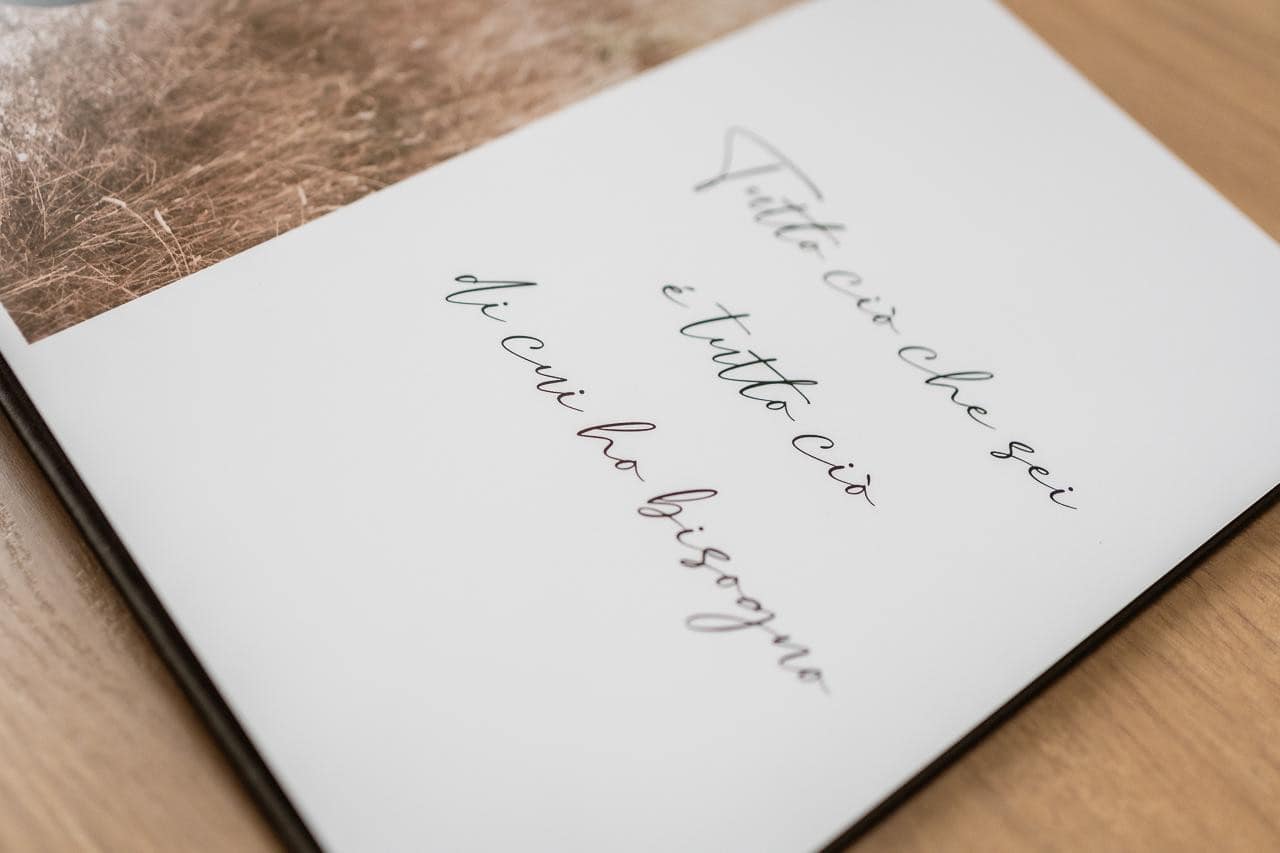 Tutto ciò che sei
é tutto ciò
di cui ho bisogno